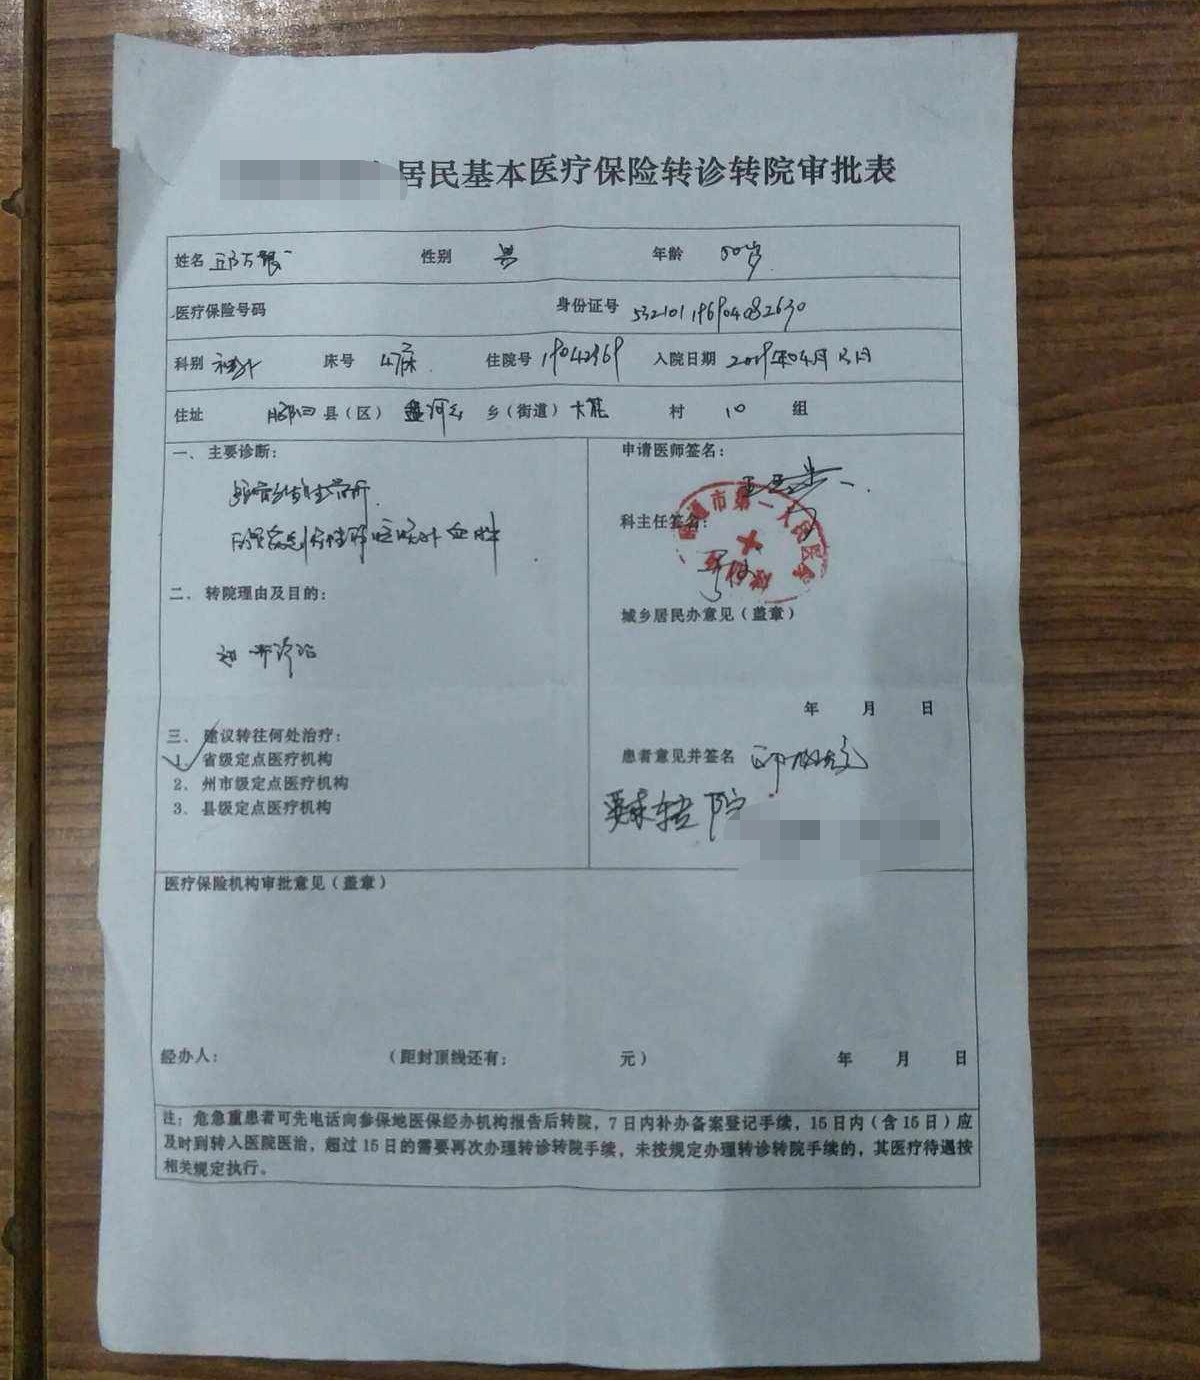 居民基本医疗保险转诊转院审批表
姓名 邱万银 性别 男 年龄 50岁
医疗保险号码 身份证号 532101196904082630
科别 神外 床号 47床 住院号 19042369 入院日期 2019年04月 日
住址 昭阳 县(区) 盘河 乡(街道) 大 村 10 组
一、主要诊断: 申请医师签名:
科主任签名:
市第一人民医院
二、转院理由及目的: 城乡居民办意见(盖章)
诊治
年 月 日
三、建议转往何处治疗: 患者意见并签名
1、省级定点医疗机构
2、州市级定点医疗机构
3、县级定点医疗机构
要求转院
医疗保险机构审批意见(盖章)
经办人: (距封顶线还有: 元) 年 月 日
注:危急重患者可先电话向参保地医保经办机构报告后转院,7日内补办备案登记手续,15日内(含15日)应
及时到转入医院医治,超过15日的需要再次办理转诊转院手续,未按规定办理转诊转院手续的,其医疗待遇按
相关规定执行。